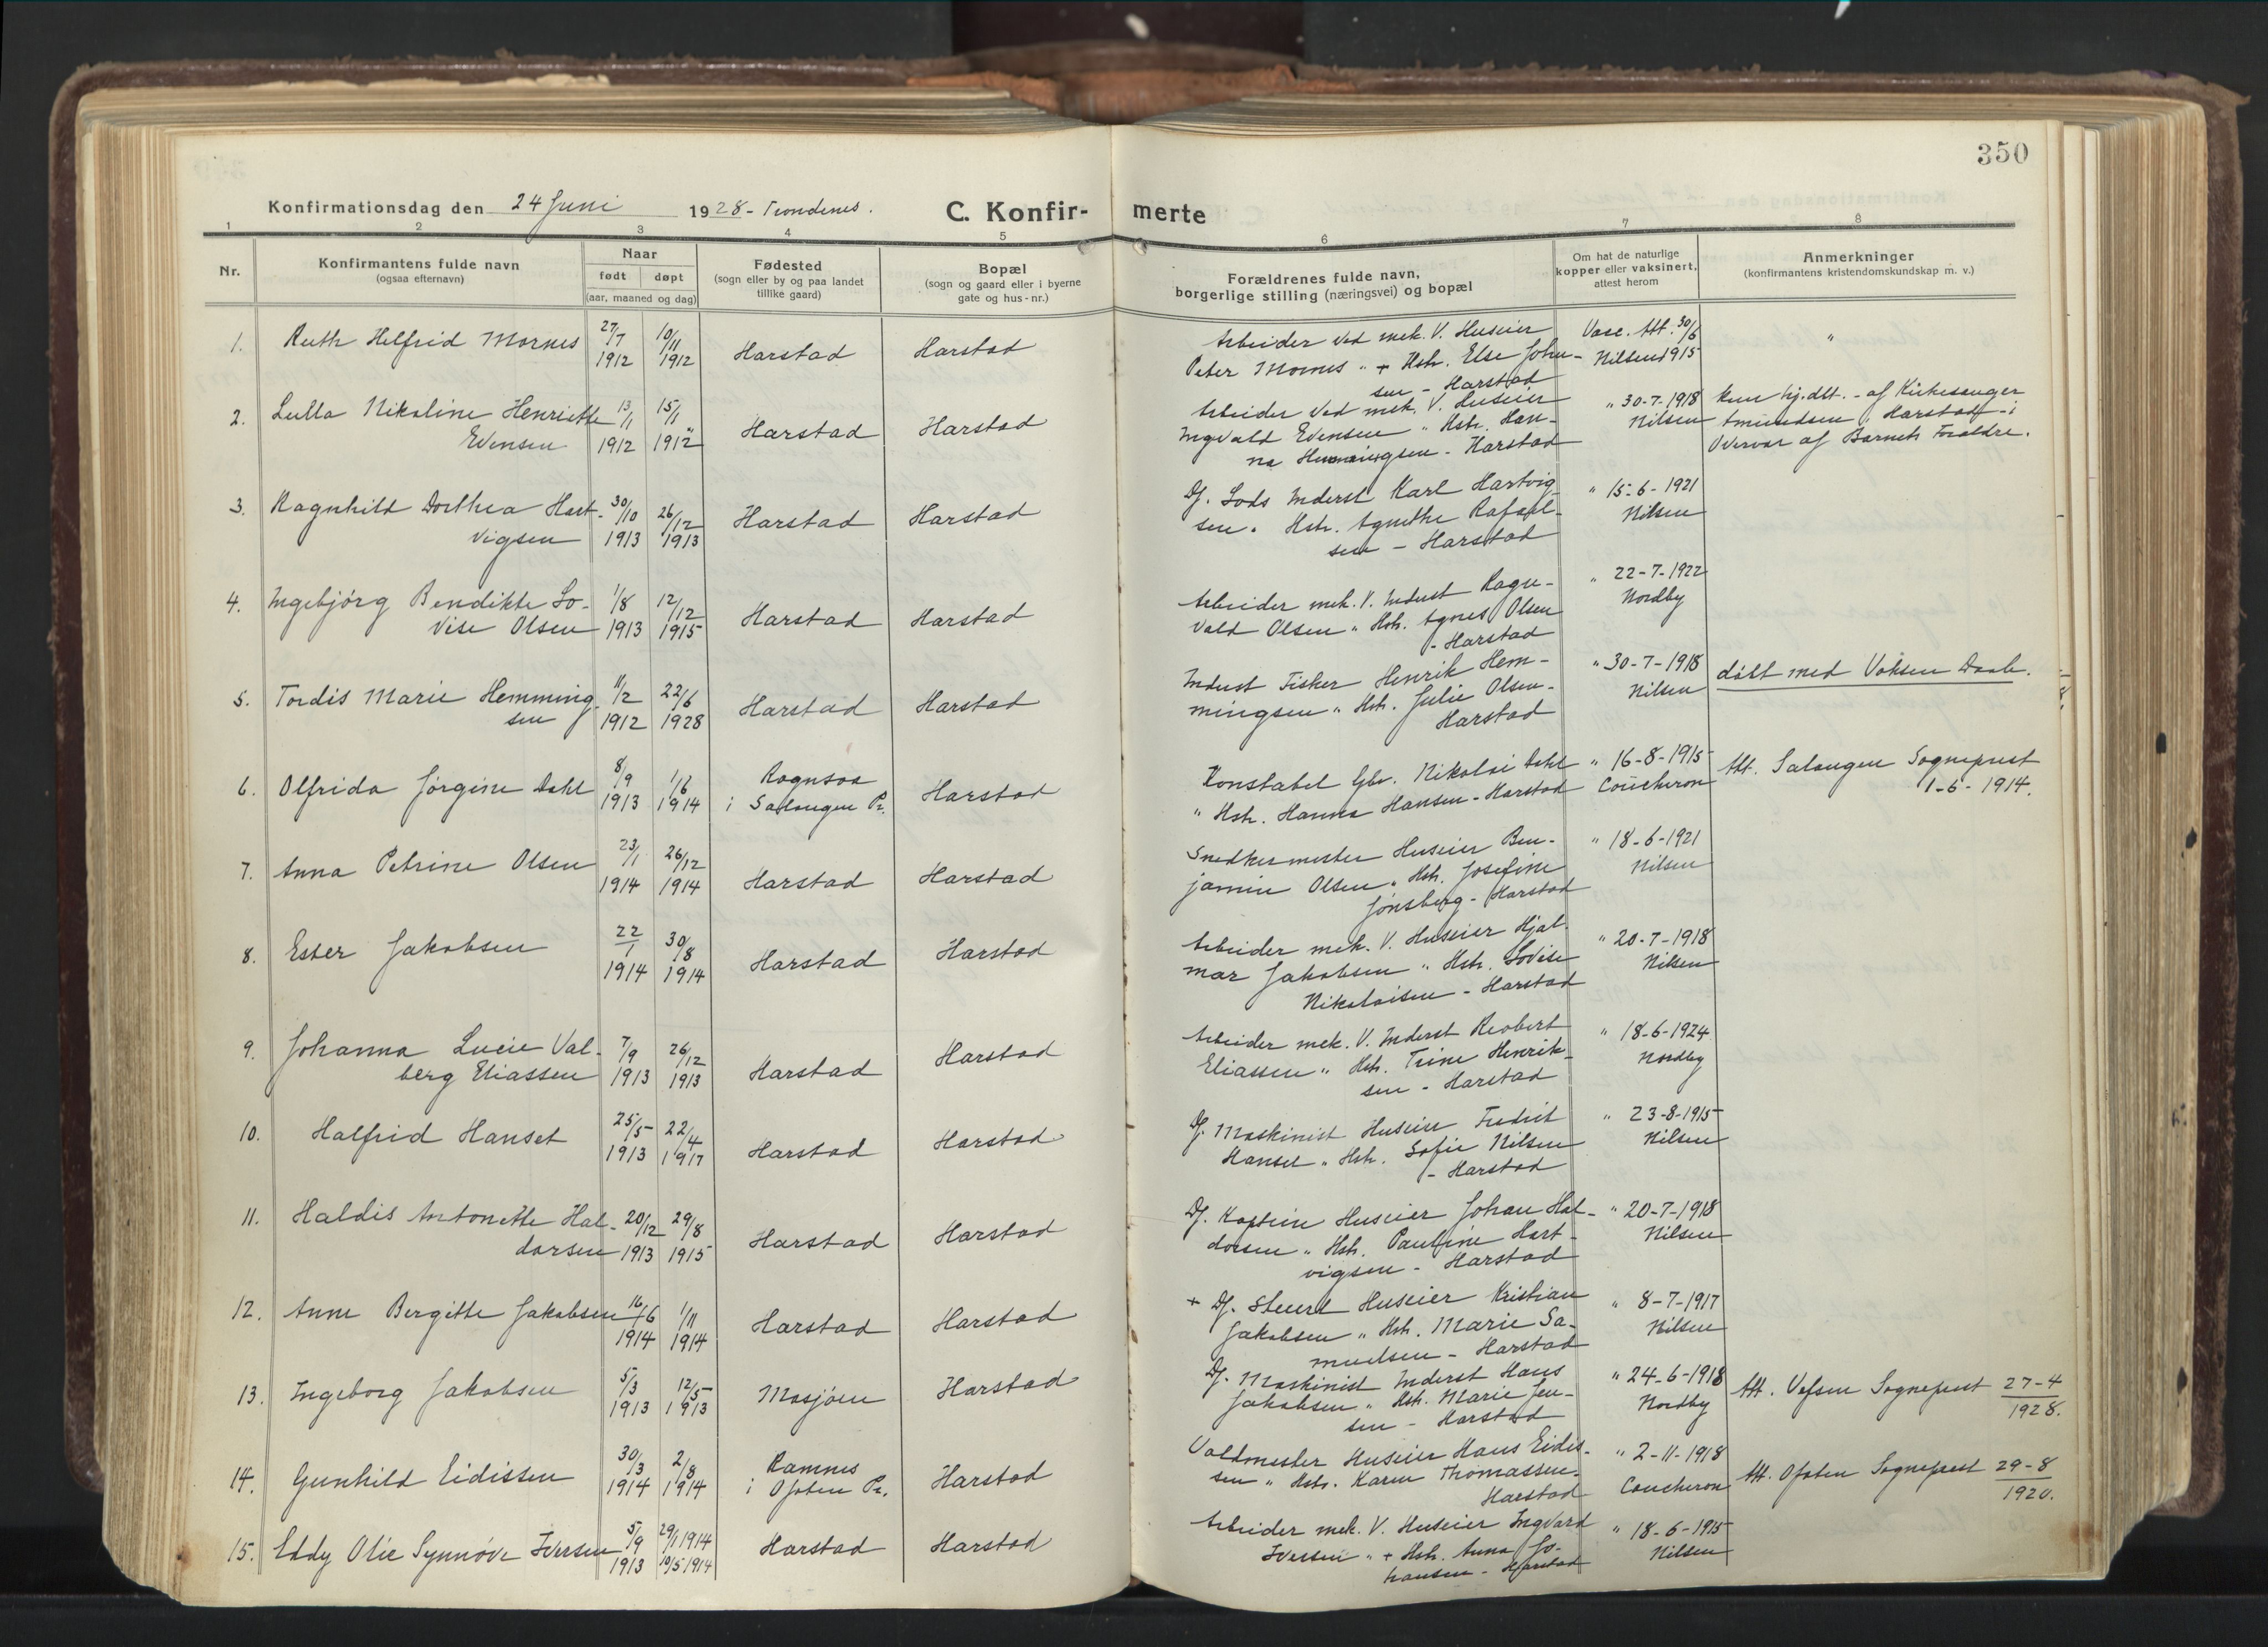 350
Konfirmationsdag den 24 Juni 1928 - Trondenes.
C. Konfir- merte
1 2 3 4 5 6 7 8
Nr.
Konfirmantens fulde navn
(ogsaa efternavn)
Naar
født døpt
(aar, maaned og dag)
Fødested
(sogn eller by og paa landet
tillike gaard)
Bopæl
(sogn og gaard eller i byerne
gate og hus-nr.)
Forældrenes fulde navn,
borgerlige stilling (næringsvei) og bopæl
Om hat de naturlige
kopper eller vaksinert,
attest herom
Anmerkninger
(konfirmantens kristendomskundskap m. v.)
1. Ruth Helfrid Mornes 27/7 1912 10/11 1912 Harstad Harstad
Arbeider ved mek. V. Huseier
Peter Mornes " + Hstr. Else Johan-
sen - Harstad
Vacc. Att. 30/6
Nilsen 1915
"
2. Lulla Nikoline Henriette
Evensen 13/1 1912 15/11 1912 Harstad Harstad
Arbeider ved mek. V. Huseier
Ingvald Evensen " Hstr. Han-
na Henningsen - Harstad
" 30-7-1918
Nilsen
kun hj.dbt. - af Kirkesanger
Amundsen, Harstad - i
Overvær af Barnets Forældre.
3. Ragnhild Dorthea Hart-
vigsen 30/10 1913 26/12 1913 Harstad Harstad
Df. Lods Inderst Karl Hartvig-
sen " Hstr. Agnethe Rafael-
sen - Harstad
" 15-6-1921
Nilsen
4. Ingebjørg Bendikte Lo-
vise Olsen 1/8 1913 12/12 1915 Harstad Harstad
Arbeider mek. V. Inderst Ragn-
vald Olsen " Hstr. Agnes Olsen
- Harstad
" 22-7-1922
Nordby
5. Tordis Marie Hemming-
sen 11/2 1912 22/6 1928 Harstad Harstad
Inderst Fisker Henrik Hem-
mingsen " Hstr. Julie Olsen -
Harstad
" 30-7-1918
Nilsen
døbt med Voksen Daab.
6. Olfrida Jørgine Dahl 8/9 1913 1/6 1914
i Salangen Pr. Harstad
Konstabel Gbr. Nikolai Dahl
" Hstr. Hanna Hansen - Harstad
" 16-8-1915
Coucheron
Att. Salangen Sogneprest
1-6-1914.
7. Anna Petrine Olsen 23/1 1914 26/12 1914 Harstad Harstad
Snedkermester Huseier Ben-
jamin Olsen " Hstr. Josefine
Jønsberg - Harstad
" 18-6-1921
Nilsen
8. Ester Jakobsen 22/1 1914 30/8 1914 Harstad Harstad
Arbeider mek. V. Huseier Hjal-
mar Jakobsen " Hstr. Lovise
Nikolaisen - Harstad
" 20-7-1918
Nilsen
9. Johanna Lucie Val-
berg Eliassen 7/9 1913 26/12 1913 Harstad Harstad
Arbeider mek. V. Inderst Robert
Eliassen " Hstr. Trine Henrik-
sen - Harstad
" 18-6-1924
Nordby
10. Halfrid Hanset 25/5 1913 22/4 1917 Harstad Harstad
Df. Maskinist Huseier Fredrik
Hanset " Hstr. Sofie Nilsen
- Harstad
" 23-8-1915
Nilsen
11. Haldis Antonette Hal-
dorsen 20/12 1913 29/8 1915 Harstad Harstad
Df. Kaptein Huseier Johan Hal-
dorsen " Hstr. Pauline Hart-
vigsen - Harstad
" 20-7-1918
Nilsen
12. Anne Bergitte Jakobsen 16/6 1914 1/11 1914 Harstad Harstad
+ Df. Stuert Huseier Kristian
Jakobsen " Hstr. Marie Sa-
muelsen - Harstad
" 8-7-1917
Nilsen
13. Ingeborg Jakobsen 5/3 1913 12/5 1913 Mosjøen Harstad
Df. Maskinist Inderst Hans
Jakobsen " Hstr. Marie Jen-
sen - Harstad
" 24-6-1918
Nordby
Att. Vefsen Sogneprest 27-4
1928.
14. Gunhild Eidissen 30/3 1914 2/8 1914 Ramnes
i Ofoten Pr. Harstad
Valdmester Huseier Hans Eidis-
sen " Hstr. Karen Thomassen -
Harstad
" 2-11-1918
Coucheron
Att. Ofoten Sogneprest 29-8
1920.
15. Eddy Olie Synnøve Iversen 5/9 1913 29/1 1914 10/5 1914 Harstad Harstad
Arbeider mek. V. Huseier Ingvard
Iversen " + Hstr. Anna Jo-
hansen - Harstad
" 18-6-1915
Nilsen